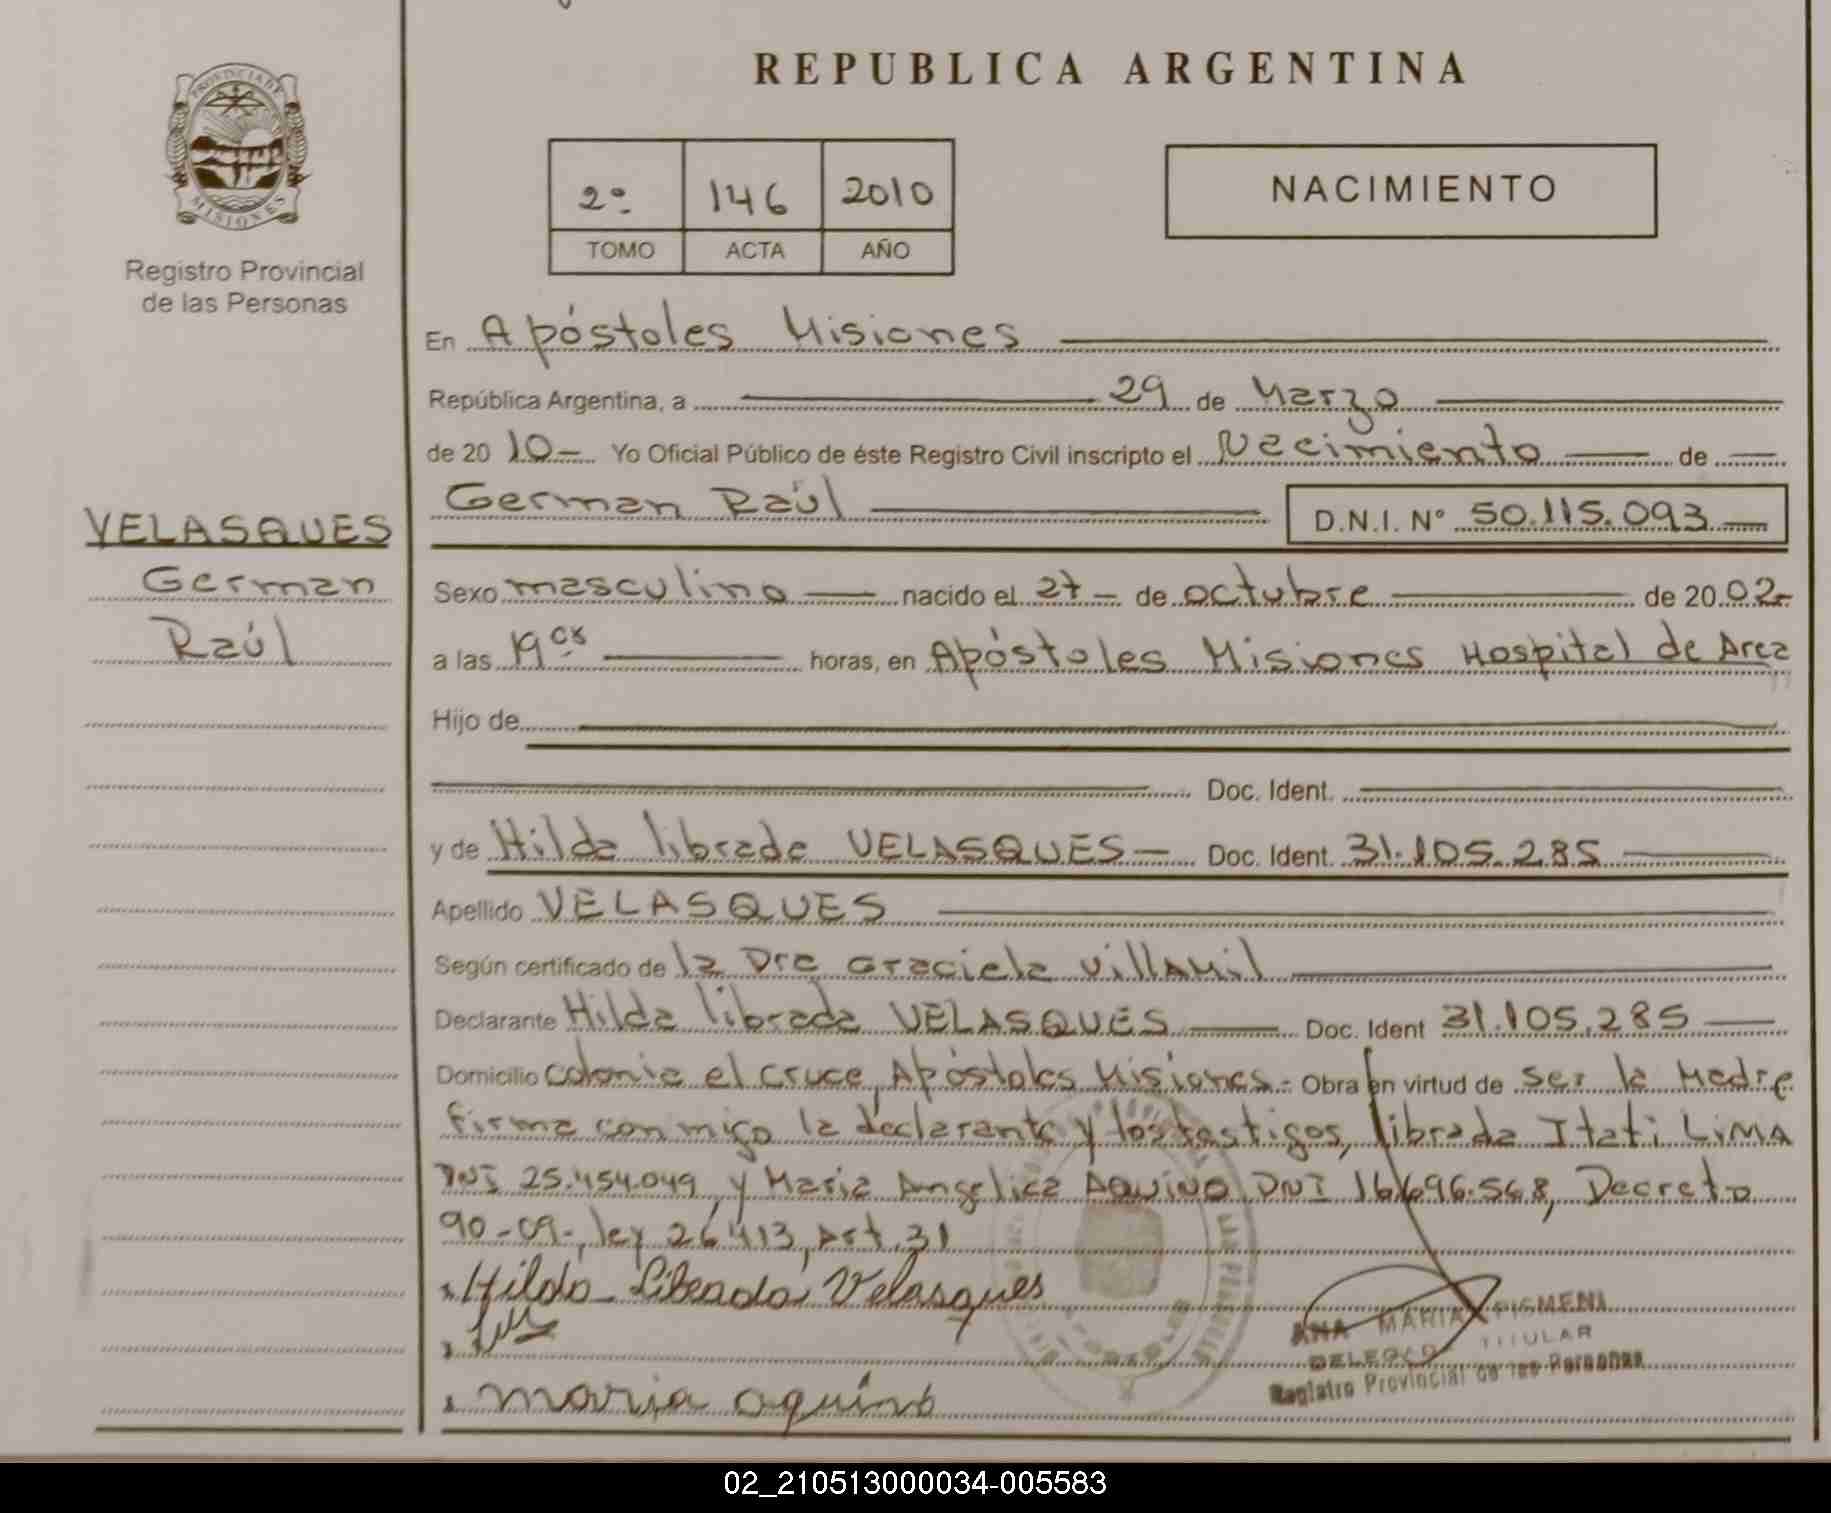 REPUBLICA ARGENTINA
PROVINCIA DE
MISIONES
Registro Provincial
de las Personas
2º 146 2010
TOMO ACTA AÑO
NACIMIENTO
En Apóstoles Misiones
República Argentina, a 29 de Marzo
de 20 10 Yo Oficial Público de éste Registro Civil inscripto el Nacimiento de
German Raúl D.N.I. Nº 50.115.093
VELASQUES
German
Raúl
Sexo masculino nacido el 27 de octubre de 20 02
a las 19 horas, en Apóstoles Misiones Hospital de Area
Hijo de
Doc. Ident.
y de Hilda librada VELASQUES Doc. Ident. 31.105.285
Apellido VELASQUES
Según certificado de la Dra Graciela Villamil
Declarante Hilda librada VELASQUES Doc. Ident 31.105.285
Domicilio Colonia el Cruce, Apóstoles Misiones.- Obra en virtud de ser la Madre
firma con migo la declarante y los testigos, librada Itati LIMA
DNI 25.454.049, y Maria Angelica AQUINO DNI 16.696.568, Decreto
90-09-, ley 26413, Art. 31
Hilda Librada Velasques
maria aquino
ANA MARIA PISMENI
DELEGADA TITULAR
Registro Provincial de las Personas
02_210513000034-005583